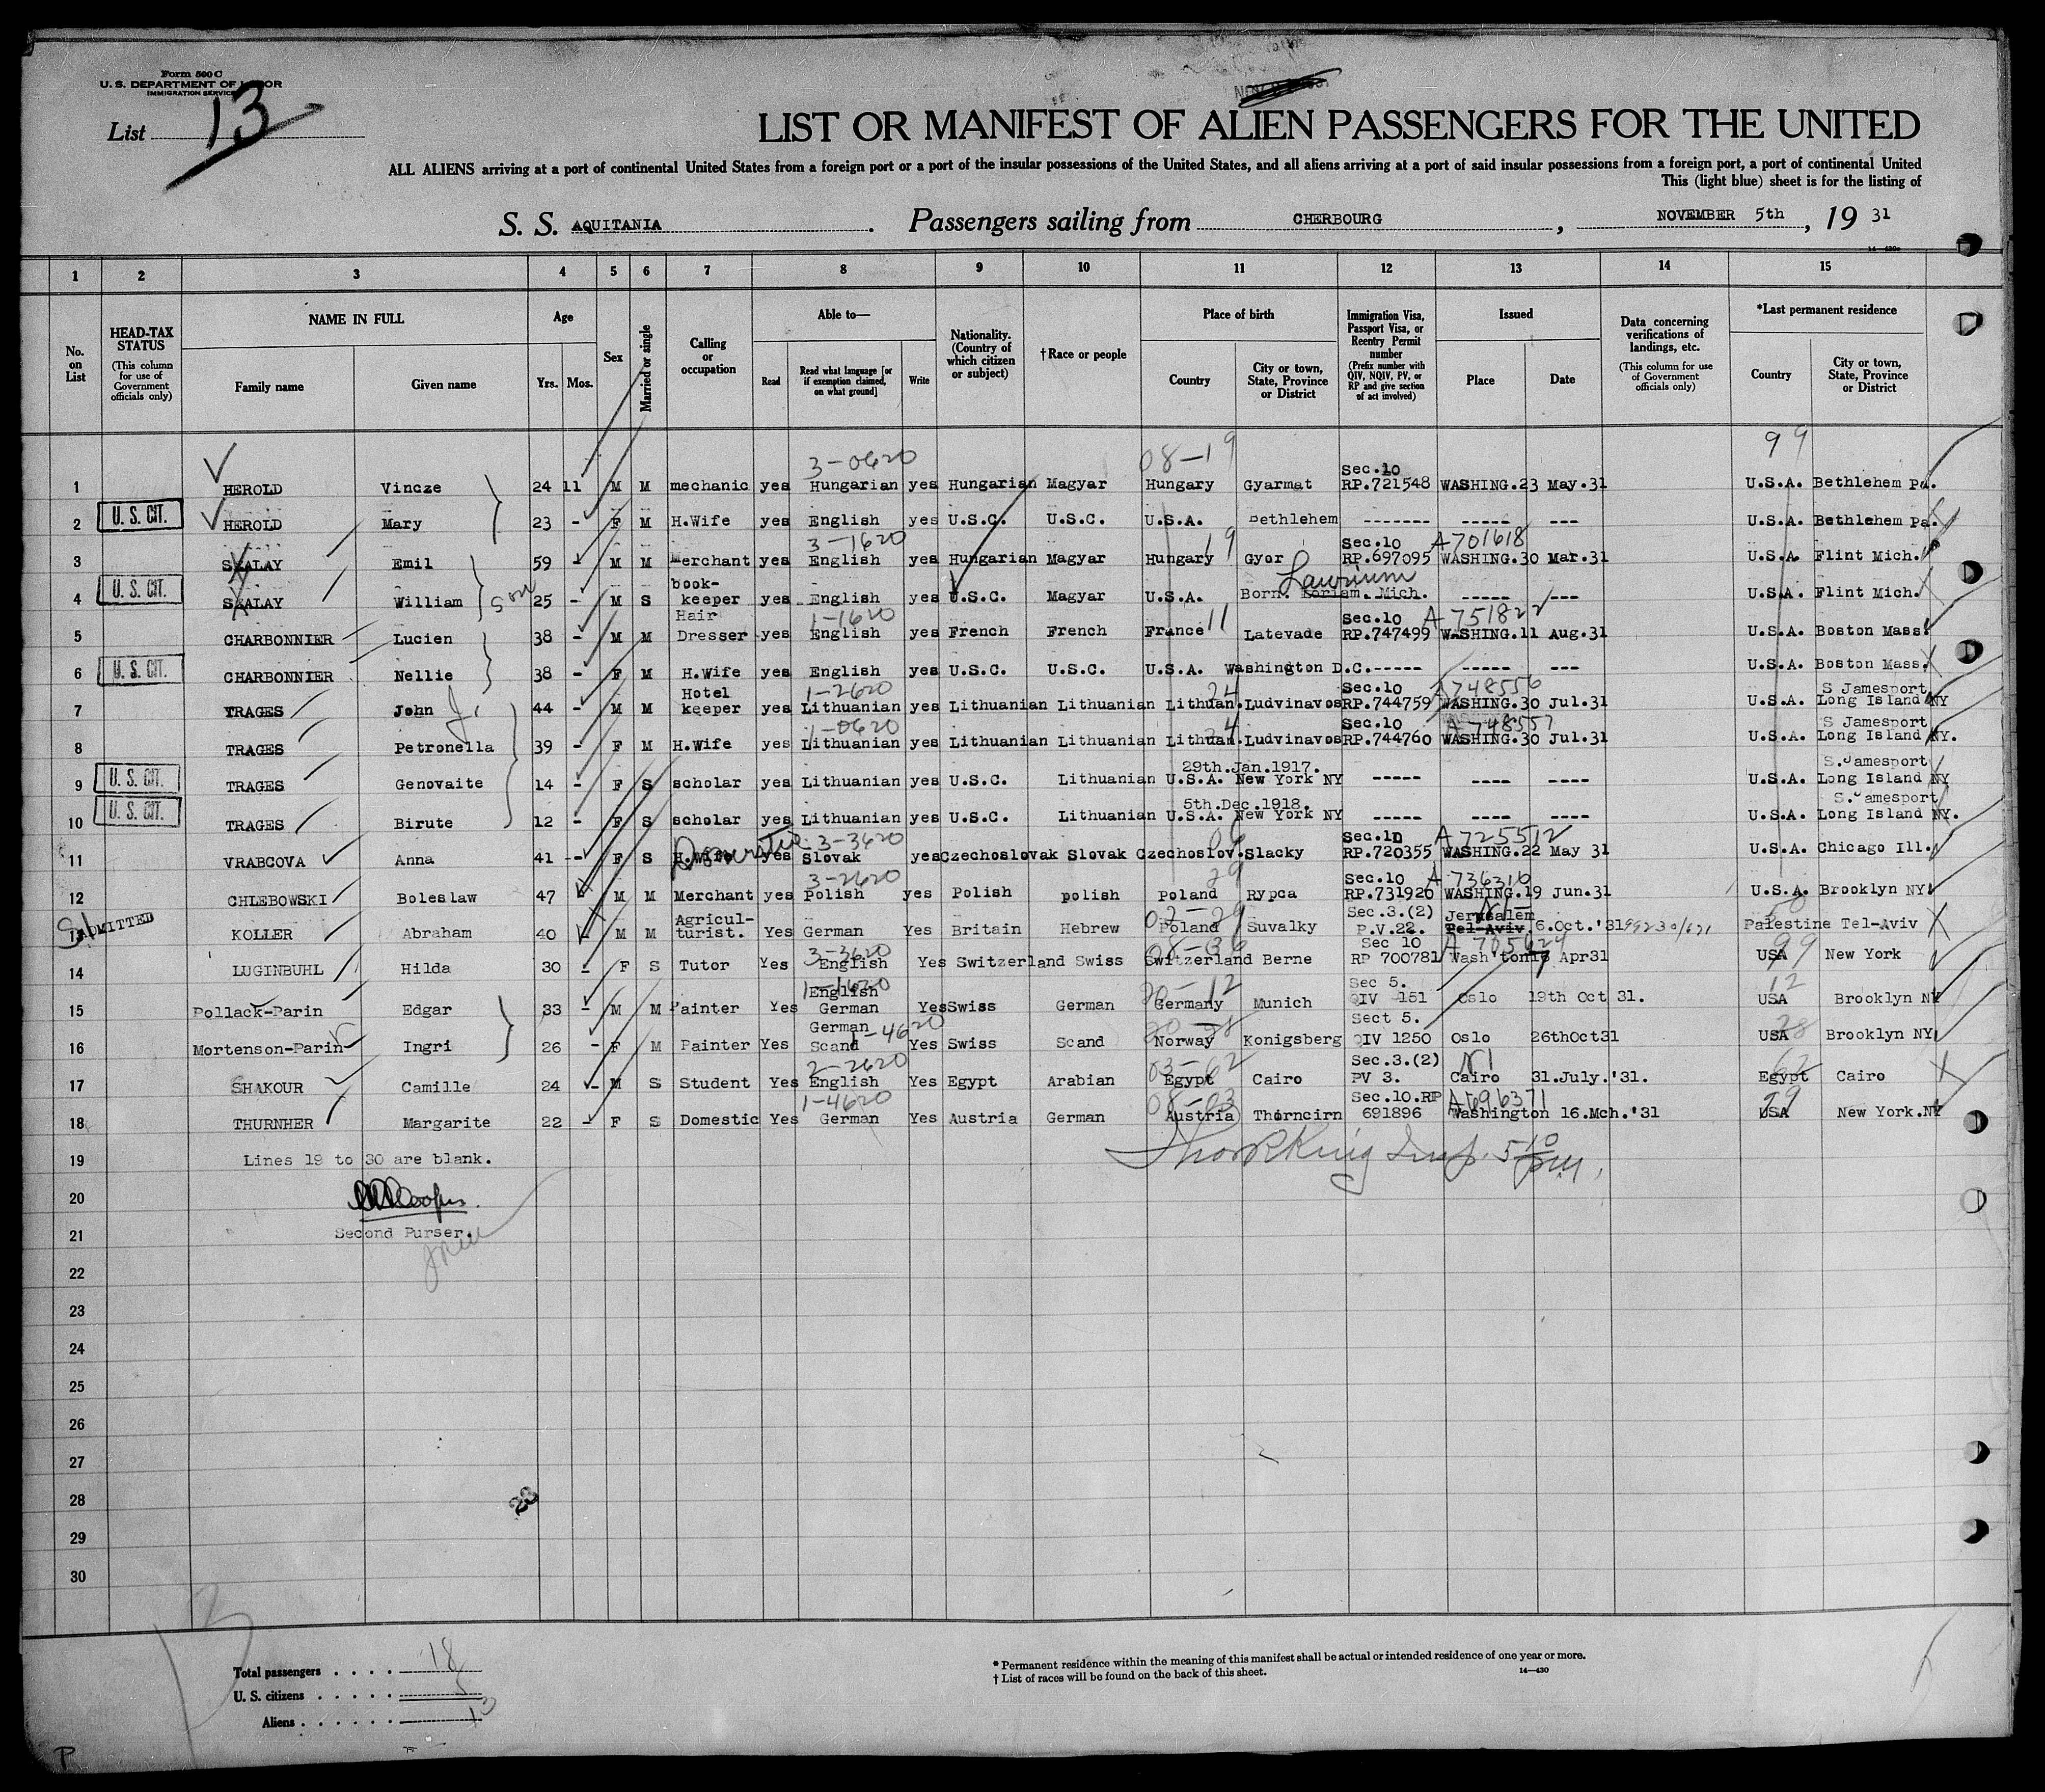 Form 500 C
U. S. DEPARTMENT OF LABOR
IMMIGRATION SERVICE
List 13
LIST OR MANIFEST OF ALIEN PASSENGERS FOR THE UNITED
ALL ALIENS arriving at a port of continental United States from a foreign port or a port of the insular possessions of the United States, and all aliens arriving at a port of said insular possessions from a foreign port, a port of continental United
This (light blue) sheet is for the listing of
S. S. AQUITANIA. Passengers sailing from CHERBOURG, NOVEMBER 5th, 19 31
1 2 3 4 5 6 7 8 9 10 11 12 13 14 15
No. on List
HEAD-TAX STATUS (This column for use of Government officials only)
NAME IN FULL Family name Given name
Age Yrs. Mos.
Sex
Married or single
Calling or occupation
Able to— Read Read what language [or if exemption claimed, on what ground] Write
Nationality. (Country of which citizen or subject)
†Race or people
Place of birth Country City or town, State, Province or District
Immigration Visa, Passport Visa, or Reentry Permit number (Prefix number with QIV, NQIV, PV, or RP and give section of act involved)
Issued Place Date
Data concerning verifications of landings, etc. (This column for use of Government officials only)
*Last permanent residence Country City or town, State, Province or District
3-0620 08-19 99
1 HEROLD Vincze 24 11 M M mechanic yes Hungarian yes Hungarian Magyar Hungary Gyarmat Sec.10 RP.721548 WASHING.23 May.31 U.S.A. Bethlehem Pa.
2 U. S. CIT. HEROLD Mary 23 - F M H.Wife yes English yes U.S.C. U.S.C. U.S.A. Bethlehem ------- ----- --- U.S.A. Bethlehem Pa.
3-1620 19 A 701618
3 SZALAY Emil 59 - M M Merchant yes English yes Hungarian Magyar Hungary Gyor Sec.10 RP.697095 WASHING.30 Mar.31 U.S.A. Flint Mich.
Son Laurium
4 U. S. CIT. SZALAY William 25 - M S book-keeper yes English yes U.S.C. Magyar U.S.A. Born. Loriam. Mich. ----- --- U.S.A. Flint Mich.
1-1620 11 A 751822
5 CHARBONNIER Lucien 38 - M M Hair Dresser yes English yes French French France Latevade Sec.10 RP.747499 WASHING.11 Aug.31 U.S.A. Boston Mass.
6 U. S. CIT. CHARBONNIER Nellie 38 - F M H.Wife yes English yes U.S.C. U.S.C. U.S.A. Washington D.C.----- ----- --- U.S.A. Boston Mass.
1-2620 24 A 748556
7 TRAGES John J. 44 - M M Hotel keeper yes Lithuanian yes Lithuanian Lithuanian Lithuan. Ludvinavos Sec.10 RP.744759 WASHING.30 Jul.31 U.S.A. S Jamesport Long Island NY
1-0620 24 A 748557
8 TRAGES Petronella 39 - F M H.Wife yes Lithuanian yes Lithuanian Lithuanian Lithuan. Ludvinavos Sec.10 RP.744760 WASHING.30 Jul.31 U.S.A. S Jamesport Long Island NY.
9 U. S. CIT. TRAGES Genovaite 14 - F S scholar yes Lithuanian yes U.S.C. Lithuanian 29th.Jan.1917. U.S.A. New York NY ----- ---- ---- U.S.A. S.Jamesport Long Island NY
10 U. S. CIT. TRAGES Birute 12 - F S scholar yes Lithuanian yes U.S.C. Lithuanian 5th.Dec.1918. U.S.A. New York NY ----- ---- ---- U.S.A. S.Jamesport Long Island NY.
Domestic 3-3620 A 725512
11 VRABCOVA Anna 41 - F S H.Wife yes Slovak yes Czechoslovak Slovak Czechoslov. Slacky Sec.10 RP.720355 WASHING.22 May 31 U.S.A. Chicago Ill.
3-2620 29 A 736316
12 CHLEBOWSKI Boleslaw 47 M M Merchant yes Polish yes Polish polish Poland Rypca Sec.10 RP.731920 WASHING.19 Jun.31 U.S.A. Brooklyn NY.
ADMITTED
13 KOLLER Abraham 40 M M Agricul-turist. Yes German Yes Britain Hebrew Poland Suvalky Sec.3.(2) P.V.22. Jerusalem Tel-Aviv. 6.Oct.'31 99230/621 Palestine Tel-Aviv
3-3620 08-36 99
14 LUGINBUHL Hilda 30 - F S Tutor Yes English Yes Switzerland Swiss Switzerland Berne Sec 10 RP 700781 Wash'ton Apr31 USA New York
1-1620 12
15 Pollack-Parin Edgar 33 - M M Painter Yes English German Yes Swiss German Germany Munich Sec 5. QIV 151 Oslo 19th Oct 31. USA Brooklyn NY
1-4620 28
16 Mortenson-Parin Ingri 26 - F M Painter Yes German Scand Yes Swiss Scand Norway Konigsberg Sect 5. QIV 1250 Oslo 26thOct31 USA Brooklyn NY
2-2620 03-62 62
17 SHAKOUR Camille 24 - M S Student Yes English Yes Egypt Arabian Egypt Cairo Sec.3.(2) PV 3. Cairo 31.July.'31. Egypt Cairo
1-4620 08-03 A696371 99
18 THURNHER Margarite 22 - F S Domestic Yes German Yes Austria German Austria Thorncirn Sec.10.RP 691896 Washington 16.Mch.'31 USA New York.NY
19 Lines 19 to 30 are blank.
20
Second Purser.
21
22
23
24
25
26
27
28
29
30
Total passengers . . . . 18
U. S. citizens . . . . . 5
Aliens . . . . . 13
* Permanent residence within the meaning of this manifest shall be actual or intended residence of one year or more.
† List of races will be found on the back of this sheet.
14—430
P